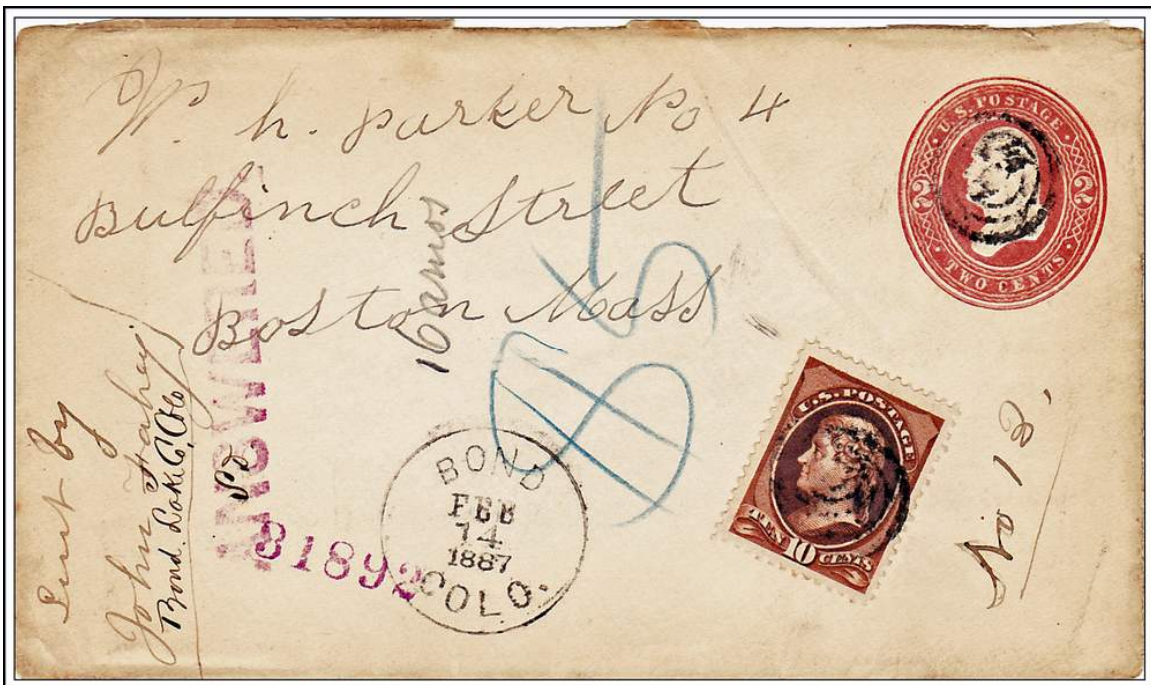 W. h. Parker No 4
Bulfinch Street
Boston Mass
U.S. POSTAGE
2 2
TWO CENTS
U.S. POSTAGE
TEN 10 CENTS
No 12.
BOND
FEB
14
1887
COLO.
81892
ANSWERED
$5
Sent by
John Fahey
Bond. Co. Colo